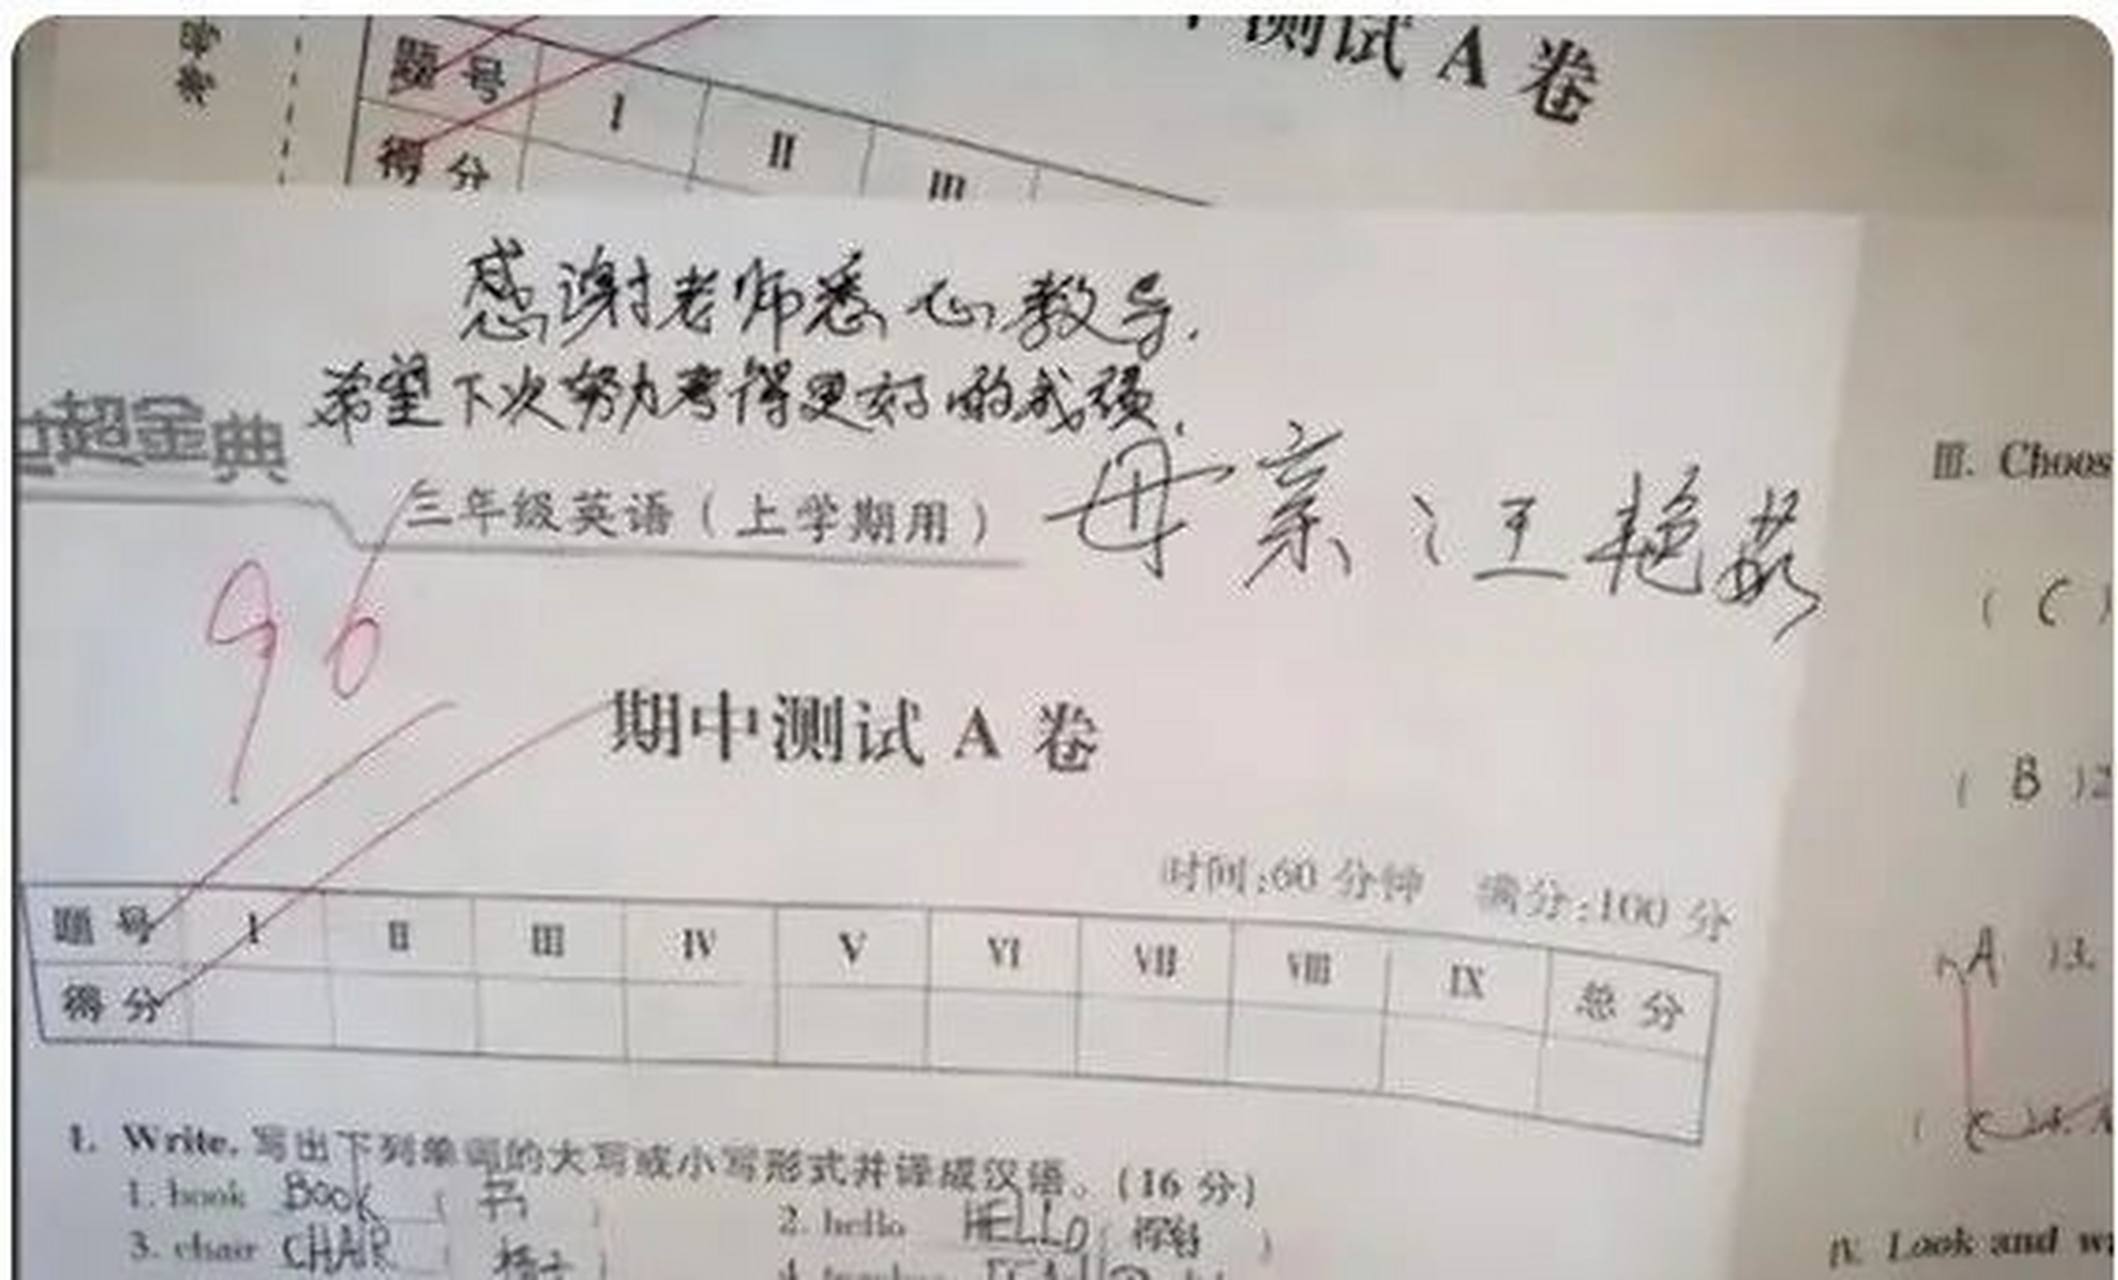 测试 A 卷
题 号 I II III
得 分
感谢老师悉心教导.
希望下次努力考得更好的成绩.
超金典
三年级英语(上学期用)
母亲:汪艳茹
96
期中测试 A 卷
时间:60 分钟 满分:100 分
题 号 I II III IV V VI VII VIII IX 总 分
得 分
I. Write. 写出下列单词的大写或小写形式并译成汉语。(16 分)
1. book BOOK ( 书 )
2. hello HELLO ( )
3. chair CHAIR ( 椅子 )
III. Choos
( C )
( B )2
A )3.
IV. Look and w